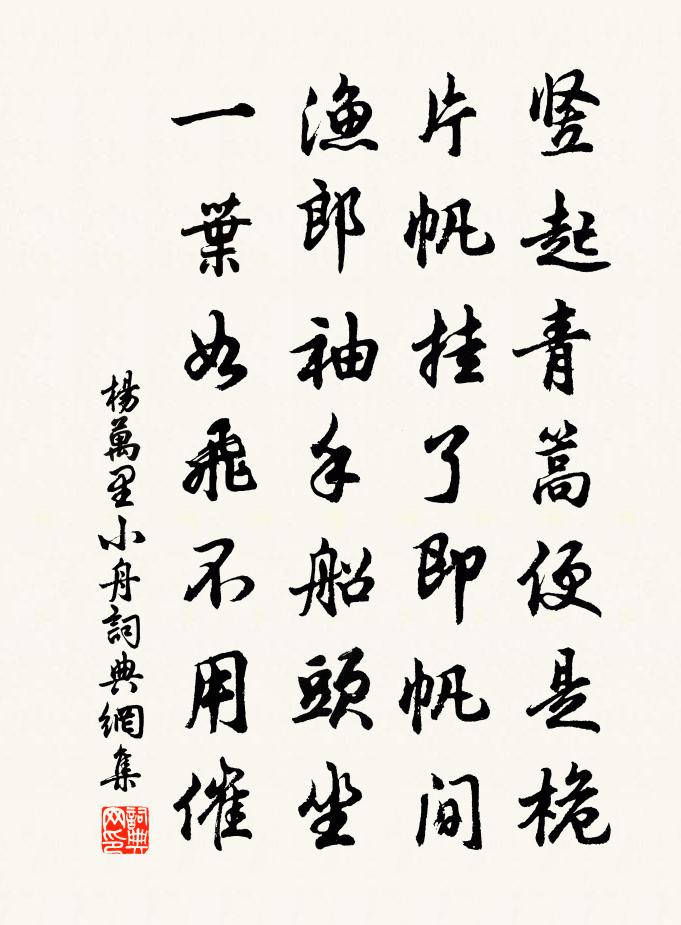 豎起青篙便是桅
片帆挂了即帆間
漁郎袖手船頭坐
一葉如飛不用催
楊萬里小舟詞典網集
詞典网印